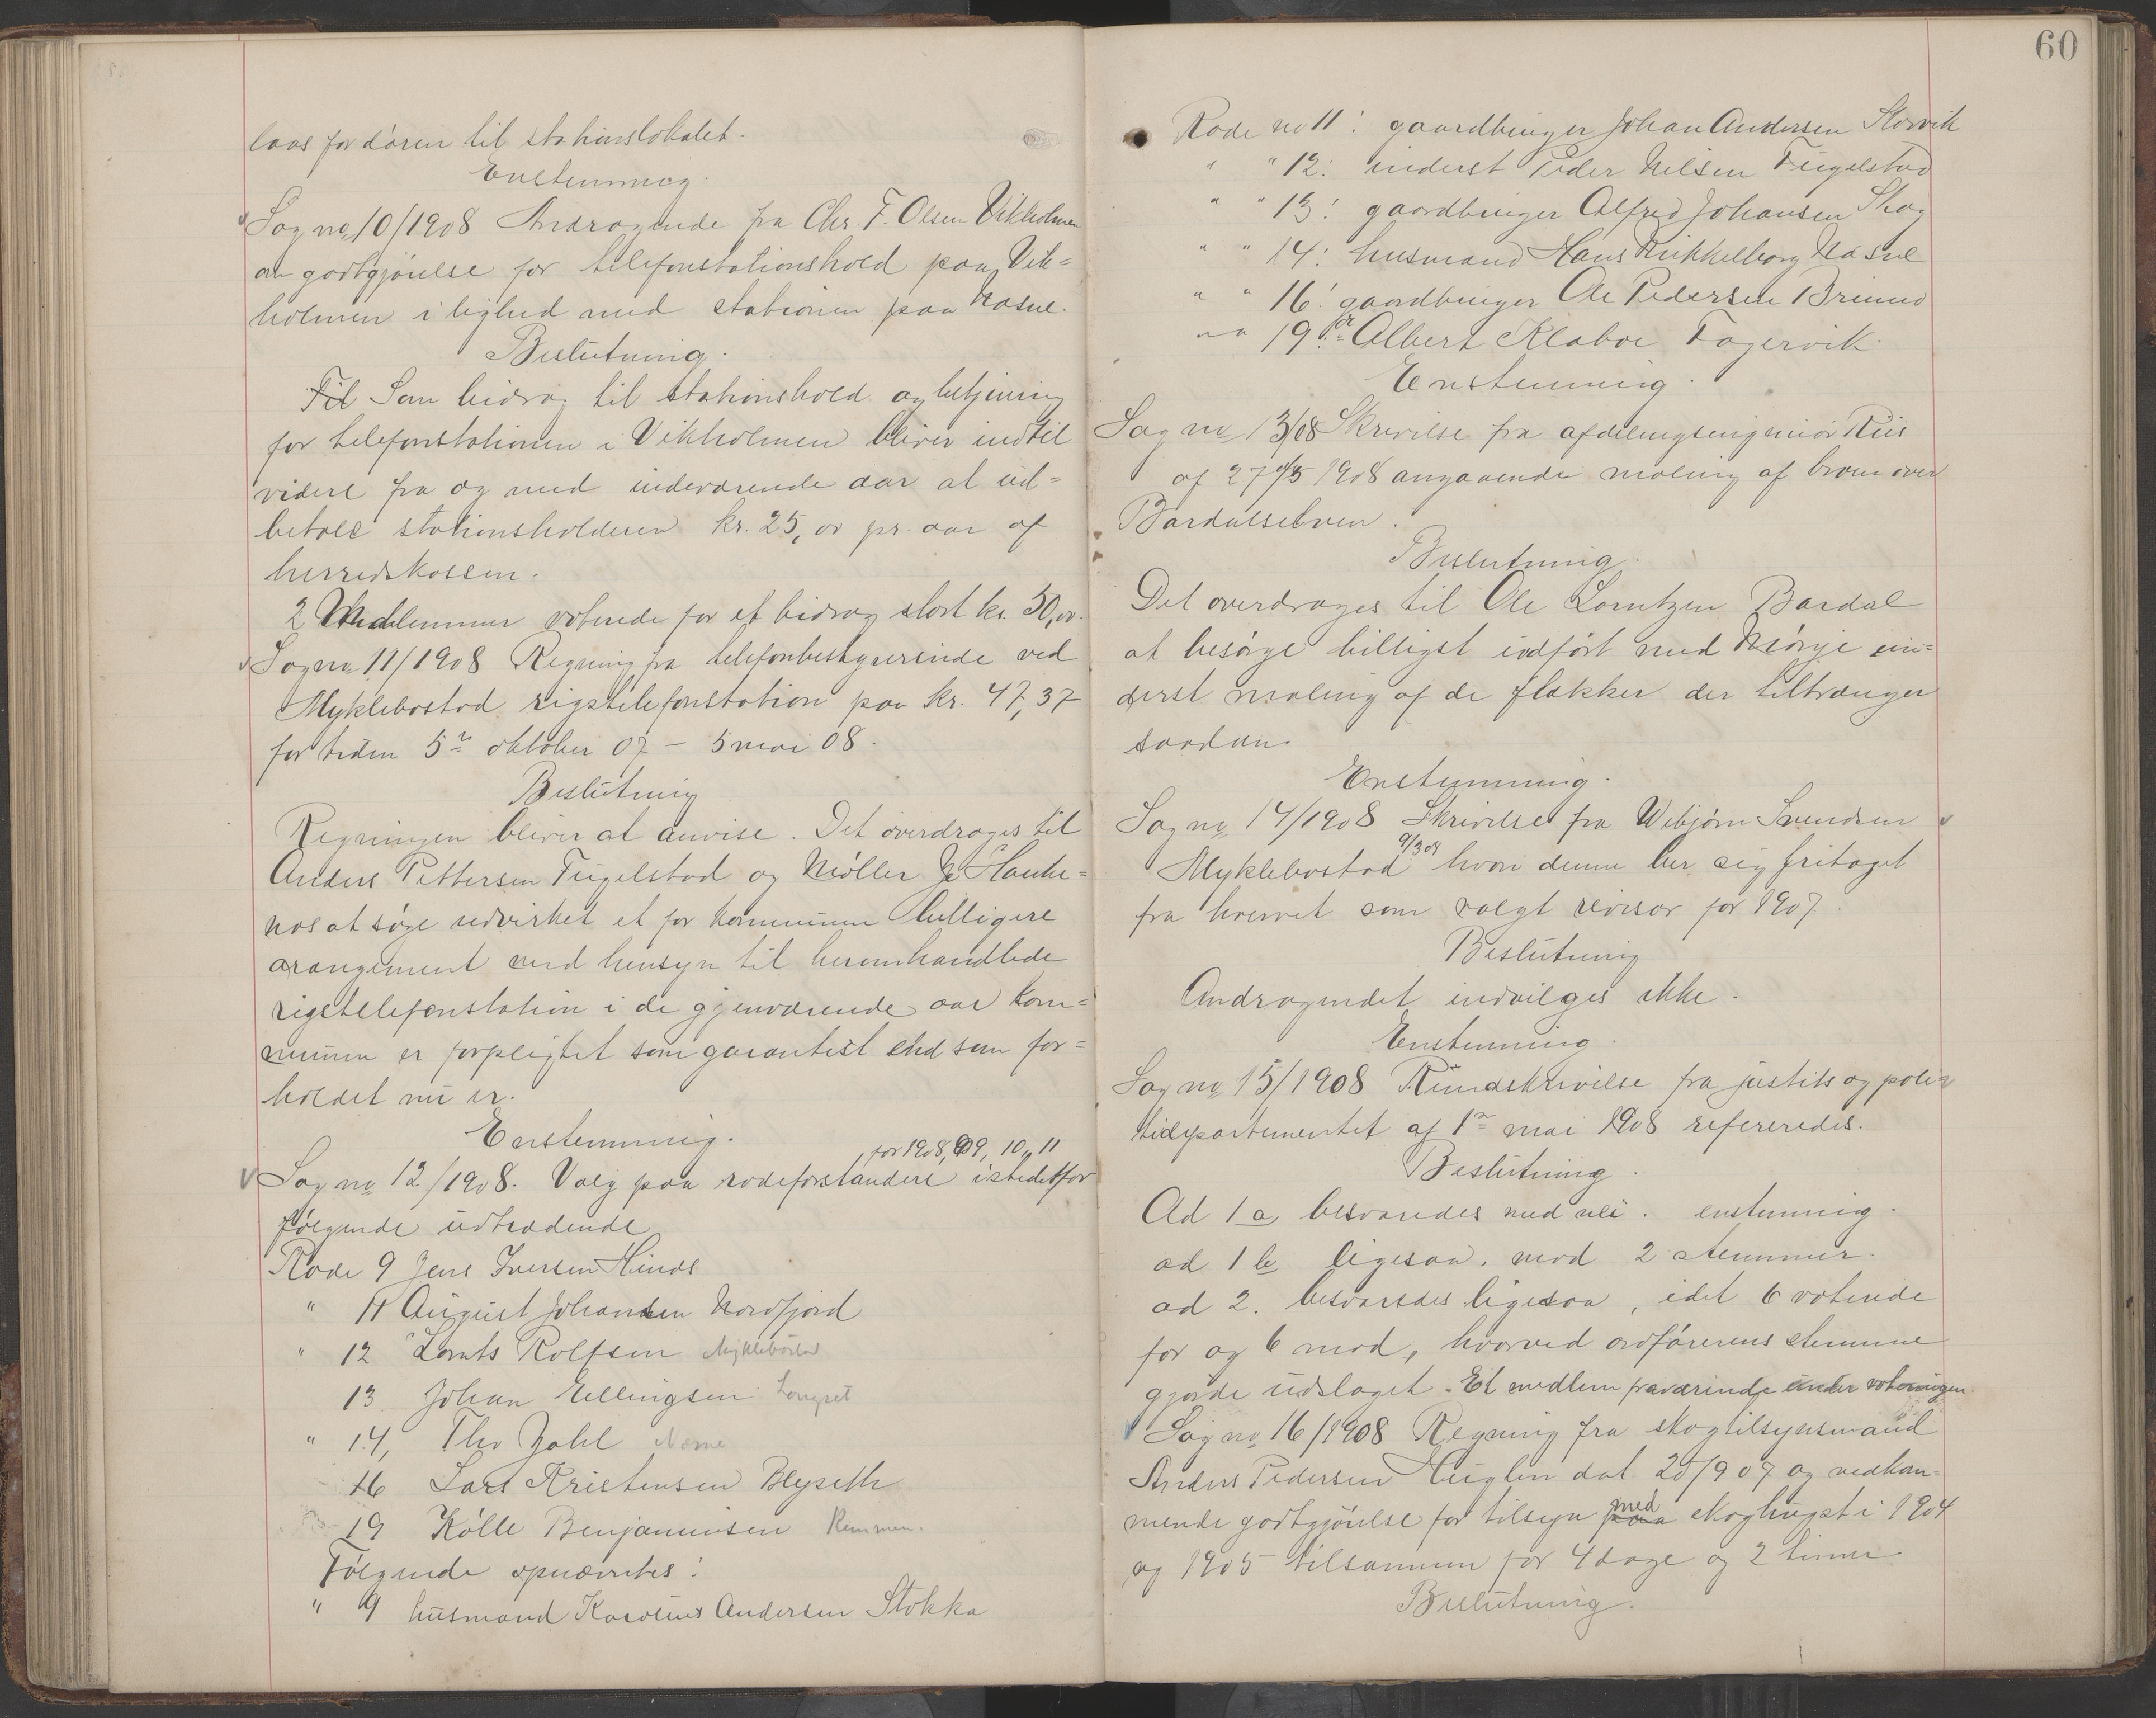 laas for døren til stationslokalet.
Enstemmig.
Sag no 10/1908 Andragende fra Chr. F. Olsen Vikholmen
om godtgjørelse for telefonstationshold paa Vik=
holmen i lighed med stationen paa Nasne.
Beslutning.
Til Som bidrag til stationshold og betjening
for telefonstationen i Vikholmen bliver indtil
videre fra og med indeværende aar at ud=
betale stationsholderen kr. 25,00 pr. aar af
herredskassen.
2 Medlemmer voterede for et bidrag stort kr. 50,00.
Sag no 11/1908 Regning fra telefonbestyrerinde ved
Myklebostad rigstelefonstation paa kr. 47,37
for tiden 5te oktober 07 – 5 mai 08.
Beslutning
Regningen bliver at anvise. Det overdrages til
Anders Pettersen Fugelstad og Møller J. Hauke=
nos at søge udvirket et for kommunen billigere
arangement med hensyn til heromhandlede
rigstelefonstation i de gjenværende aar kom=
munen er forpligtet som garantist end som for=
holdet nu er.
Enstemmig.
for 1908, 09, 10, 11
Sag no 12/1908. Valg paa rodeforstandere istedetfor
følgende udtrædende
Rode 9 Jens Iversen Hinds
" 11 August Johansen Nordfjord
" 12 Lornts Rolfsen Myklebostad
13. Johan Ellingsen Langset
" 14, Thv Zahl Nesne
16 Lars Kristensen Blyseth
19 Kølle Benjaminsen
Følgende opnævntes:
" 9 husmand Karolius Andersen Stokka
60
Rode no 11: gaardbruger Johan Andersen Storvik
" " 12: inderst Peder Nilsen Fugelstad
" " 13: gaardbruger Alfred Johansen Skog
" " 14: husmand Hans Mikkelborg Nasne
" " 16: gaardbruger Ole Pedersen Brimo
" " 19: Albert Klaboe Fagervik.
Enstemmig.
Sag no 13/08 Skrivelse fra afdelingsingeniør Riis
af 27 1908 angaaende maling af broen over
Bardalselven.
Beslutning.
Det overdrages til Ole Lorntzen Bardal
at besørge billigst udført med Mørje in=
derst maling af de flækker der tiltrænger
saadan.
Enstemmig.
Sag no 14/1908 Skrivelse fra Webjørn Svendsen
9/3 08
Myklebostad hvori denne ber sig fritaget
fra hvervet som valgt revisor for 1907.
Beslutning
Andragendet indvilges ikke.
Enstemmig.
Sag no 15/1908 Rundskrivelse fra justits og poli=
tidepartementet af 1ste mai 1908 refereredes.
Beslutning.
Ad 1 a, besvaredes med nei. enstemmig.
ad 1 b ligesaa, mod 2 stemmer.
ad 2. besvaredes ligesaa, idet 6 voterede
for og 6 mod, hvorved ordførerens stemme
gjorde udslaget. Et medlem fraværende under voteringen.
Sag no 16/1908 Regning fra skogtilsynsmand
Anders Pedersen Huglen dat. 20/9 07 og vedkom=
med
mende godtgjørelse for tilsyn paa skoghugst i 1904
og 1905 tilsammen for 4 dage og 2 timer
Beslutning.